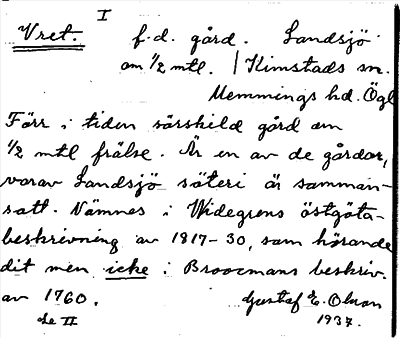 I
Vret. f.d. gård. Landsjö
om 1/2 mtl. / Kimstads sn.
Memmings hd. Ögl
Förr i tiden särskild gård om
1/2 mtl frälse. Är en av de gårdar,
varav Landsjö säteri är samman-
satt. Nämnes i Widegrens östgöta-
beskrivning av 1817-30, som hörande
dit men icke i Broocmans beskriv.
av 1760. Gustaf E. Olson
Se II 1937.